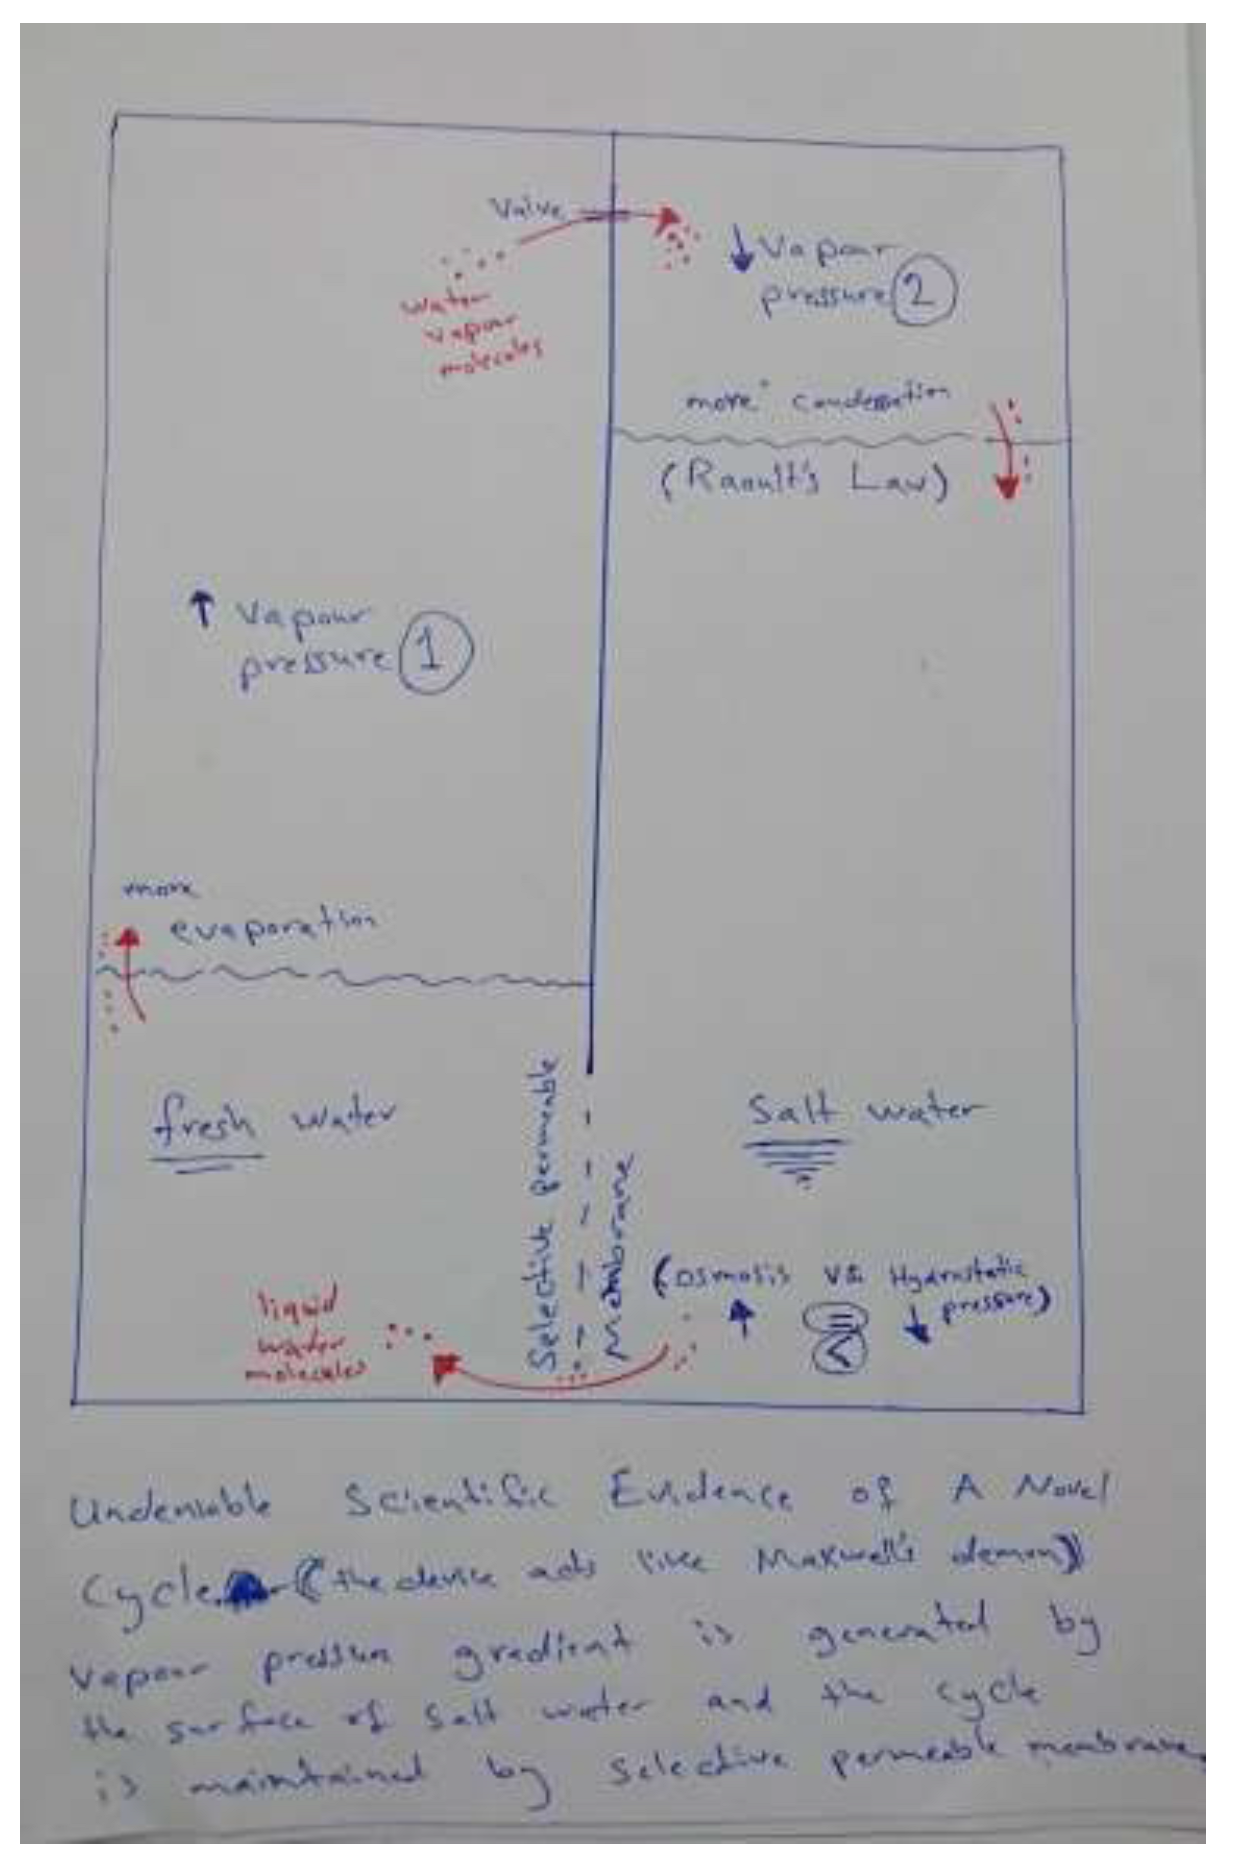 Valve
water
vapour
molecules
↓ Vapour
pressure 2
more condensation
(Raoult's Law)
↑ Vapour
pressure 1
more
evaporation
fresh water
Selective permeable
Membrane
Salt water
(osmosis vs Hydrostatic
pressure)
↑ = ↓
<
liquid
water
molecules
Undeniable Scientific Evidence of A Novel
Cycle ((the device acts like Maxwell's demon))
Vapour pressure gradient is generated by
the surface of salt water and the cycle
is maintained by selective permeable membrane.